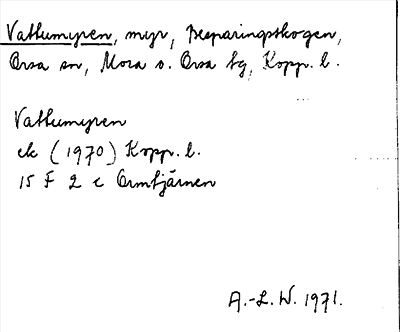 Vattumyren, myr, Besparingsskogen,
Orsa sn, Mora o. Orsa tg, Kopp. l.
Vattumyren
ek (1970) Kopp. l.
15 F 2 c Ormtjärnen
A.-L. W. 1971.